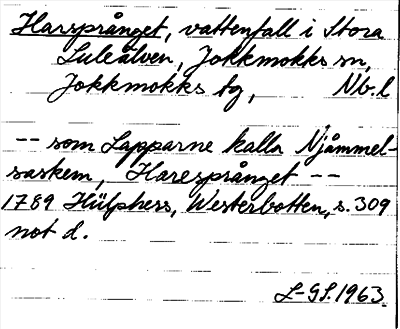 Harsprånget, vattenfall i Stora
Luleälven, Jokkmokks sn,
Jokkmokks tg, Nb.l
-- som Lapparne kalla Njåmmel-
saskem, Haresprånget --
1789 Hülphers, Westerbotten, s. 309
not d.
L-GL.1963